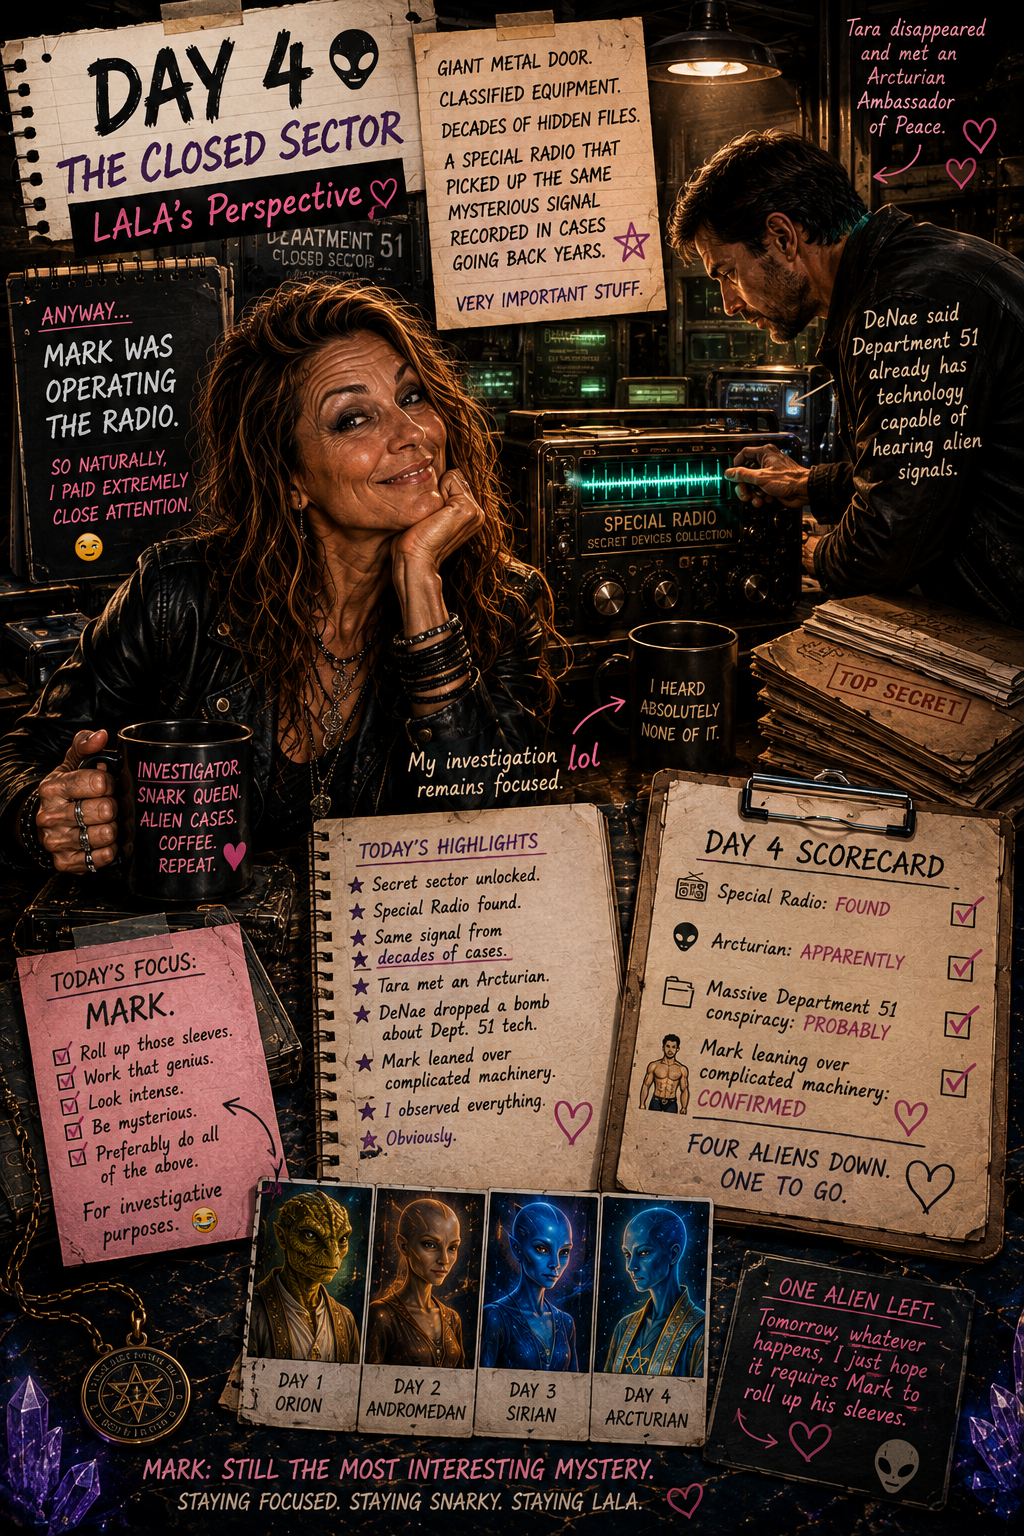 DAY 4
THE CLOSED SECTOR
LALA's Perspective
GIANT METAL DOOR.
CLASSIFIED EQUIPMENT.
DECADES OF HIDDEN FILES.
A SPECIAL RADIO THAT
PICKED UP THE SAME
MYSTERIOUS SIGNAL
RECORDED IN CASES
GOING BACK YEARS.
VERY IMPORTANT STUFF.
Tara disappeared
and met an
Arcturian
Ambassador
of Peace.
51
CLOSED SECTOR
ANYWAY...
MARK WAS
OPERATING
THE RADIO.
SO NATURALLY,
I PAID EXTREMELY
CLOSE ATTENTION.
DeNae said
Department 51
already has
technology
capable of
hearing alien
signals.
SPECIAL RADIO
SECRET DEVICES COLLECTION
TOP SECRET
I HEARD
ABSOLUTELY
NONE OF IT.
My investigation
remains focused.
lol
INVESTIGATOR.
SNARK QUEEN.
ALIEN CASES.
COFFEE.
REPEAT.
TODAY'S HIGHLIGHTS
Secret sector unlocked.
Special Radio found.
Same signal from
decades of cases.
Tara met an Arcturian.
DeNae dropped a bomb
about Dept. 51 tech.
Mark leaned over
complicated machinery.
I observed everything.
Obviously.
DAY 4 SCORECARD
Special Radio: FOUND
Arcturian: APPARENTLY
Massive Department 51
conspiracy: PROBABLY
Mark leaning over
complicated machinery:
CONFIRMED
FOUR ALIENS DOWN.
ONE TO GO.
TODAY'S FOCUS:
MARK.
Roll up those sleeves.
Work that genius.
Look intense.
Be mysterious.
Preferably do all
of the above.
For investigative
purposes.
DAY 1
ORION
DAY 2
ANDROMEDAN
DAY 3
SIRIAN
DAY 4
ARCTURIAN
ONE ALIEN LEFT.
Tomorrow, whatever
happens, I just hope
it requires Mark to
roll up his sleeves.
MARK: STILL THE MOST INTERESTING MYSTERY.
STAYING FOCUSED. STAYING SNARKY. STAYING LALA.